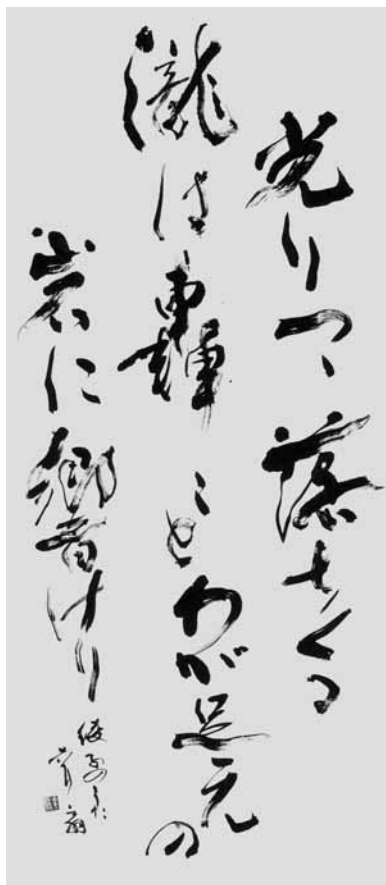 光りつゝ落ちくる
瀧は轟ゝとわが足元の
岩に響けり